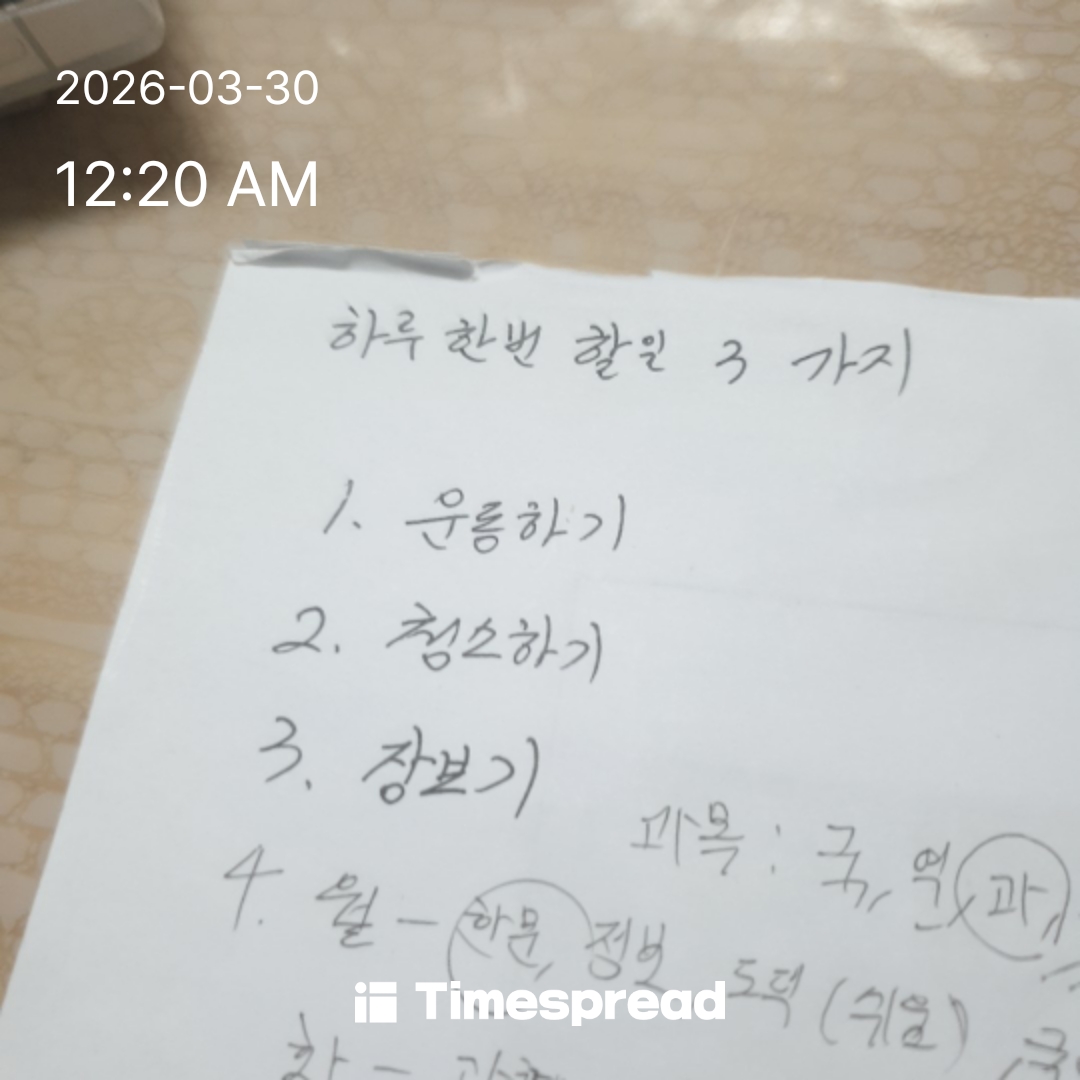 2026-03-30
12:20 AM
하루 한번 할일 3 가지
1. 운동하기
2. 청소하기
3. 장보기
과목 : 국, 역, 과,
4. 월 - 한문, 정보 도덕 (쉬움)
Timespread
화 -